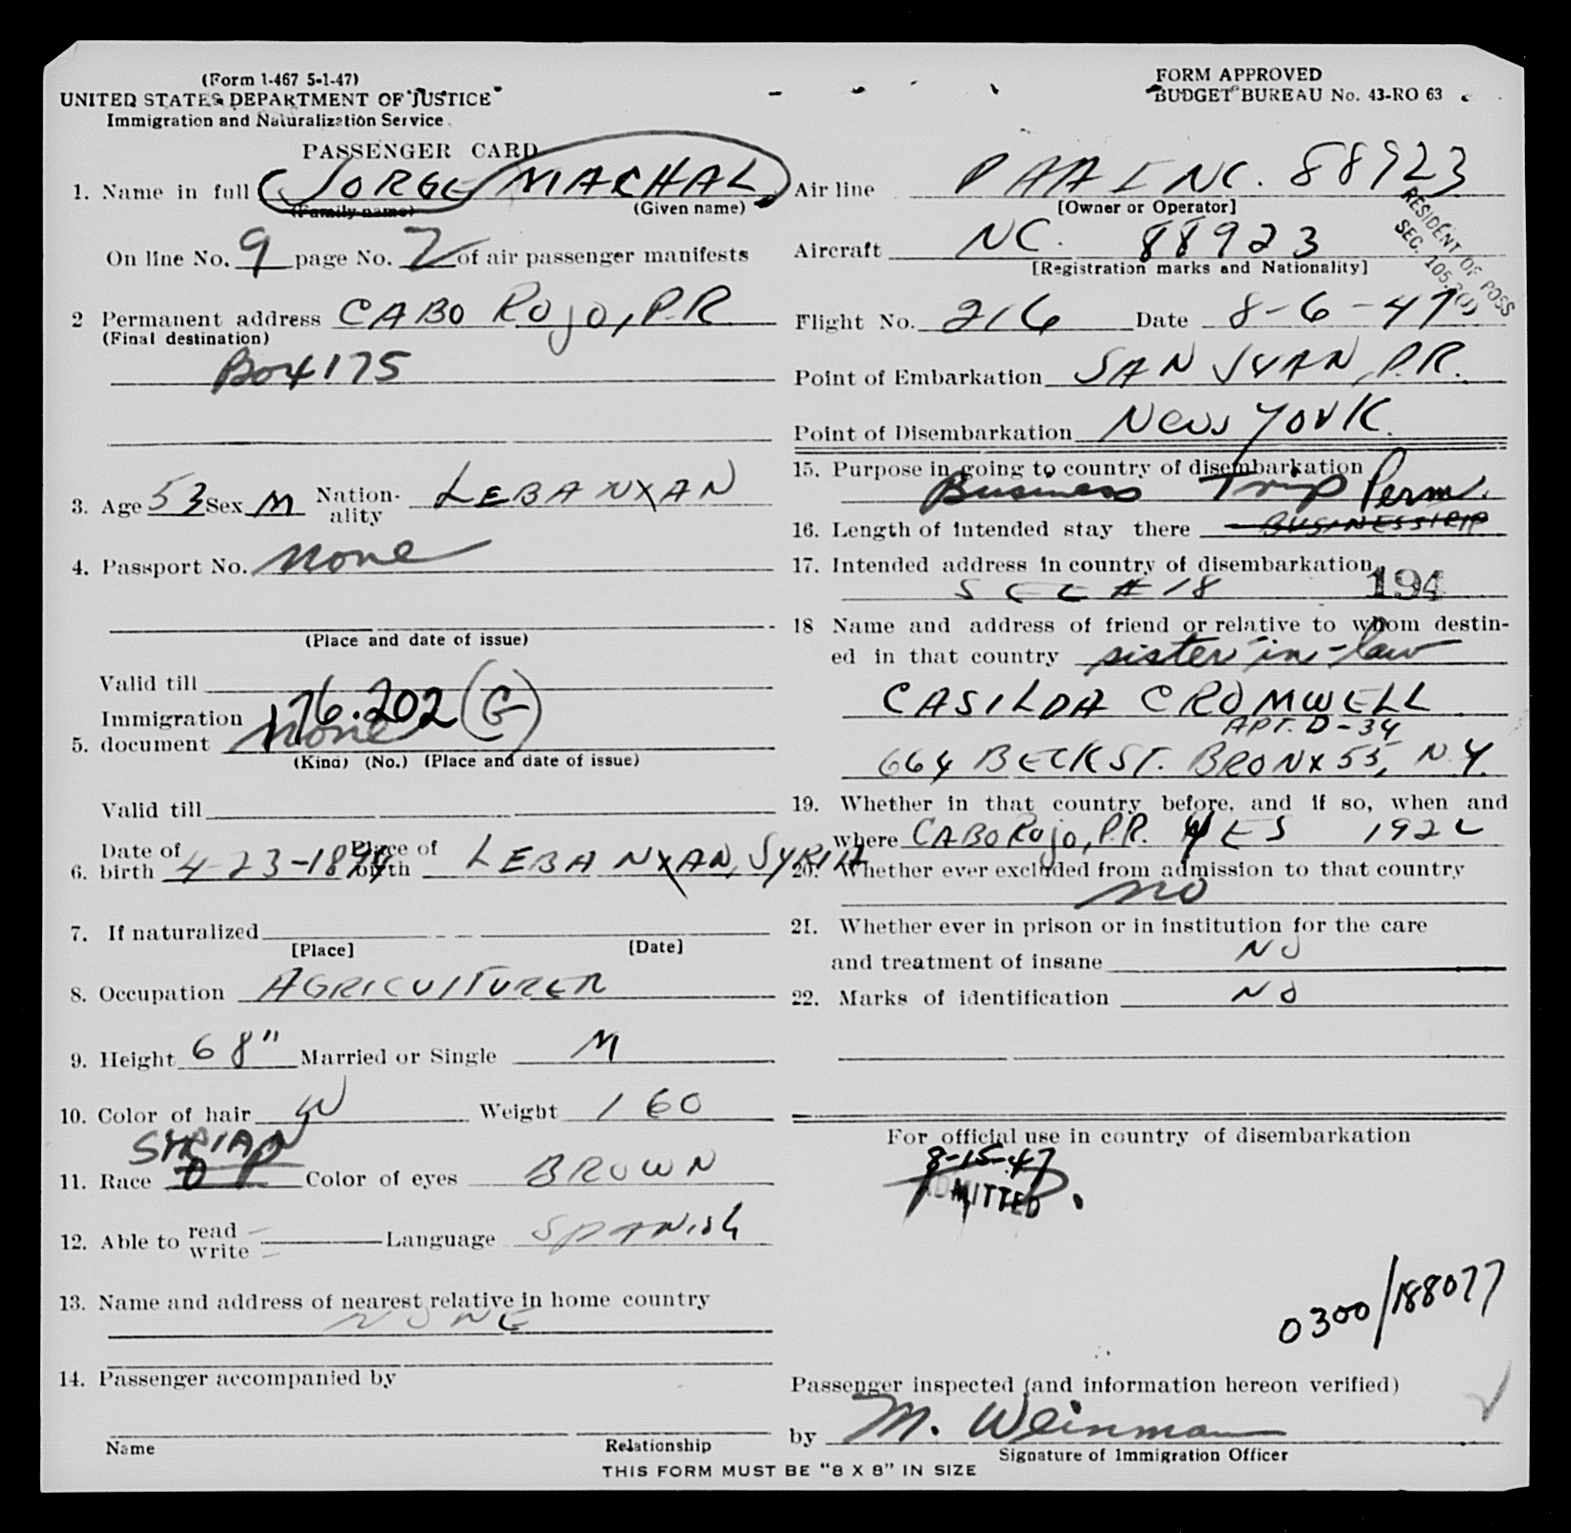 (Form I-467 5-1-47)
UNITED STATES DEPARTMENT OF JUSTICE
Immigration and Naturalization Service
FORM APPROVED
BUDGET BUREAU No. 43-RO 63
PASSENGER CARD
1. Name in full JORGE MACHAL
(Family name) (Given name)
On line No. 9 page No. 2 of air passenger manifests
2 Permanent address CABO ROJO, P.R.
(Final destination)
Box 175
3. Age 53 Sex M Nation-ality LEBANXAN
4. Passport No. none
(Place and date of issue)
Valid till
176.202 (G)
Immigration
5. document none
(Kind) (No.) (Place and date of issue)
Valid till
Date of Place of
6. birth 4-23-1894 birth LEBANXAN, SYRIA
7. If naturalized
[Place] [Date]
8. Occupation AGRICULTURER
9. Height 68" Married or Single M
10. Color of hair W Weight 160
SYRIAN
11. Race Color of eyes BROWN
12. Able to read write Language SPANISH
13. Name and address of nearest relative in home country
NONE
14. Passenger accompanied by
Name Relationship
Air line PAA INC. 88923
[Owner or Operator]
RESIDENT OF POSS
SEC. 105.2(J)
Aircraft NC. 88923
[Registration marks and Nationality]
Flight No. 216 Date 8-6-47
Point of Embarkation SAN JUAN, P.R.
Point of Disembarkation New YORK.
15. Purpose in going to country of disembarkation
Business Trip Perm.
16. Length of intended stay there BUSINESS TRIP
17. Intended address in country of disembarkation
SEE # 18 194
18 Name and address of friend or relative to whom destin-
ed in that country sister-in-law
CASILDA CROMWELL
APT. D-34
664 BECK ST. BRONX 55, N.Y.
19. Whether in that country before, and if so, when and
where CABO Rojo, P.R. YES 192
20. Whether ever excluded from admission to that country
no
21. Whether ever in prison or in institution for the care
and treatment of insane NO
22. Marks of identification NO
For official use in country of disembarkation
8-15-47
ADMITTED
0300/188077
Passenger inspected (and information hereon verified)
by M. Weinman
Signature of Immigration Officer
THIS FORM MUST BE "8 X 8" IN SIZE